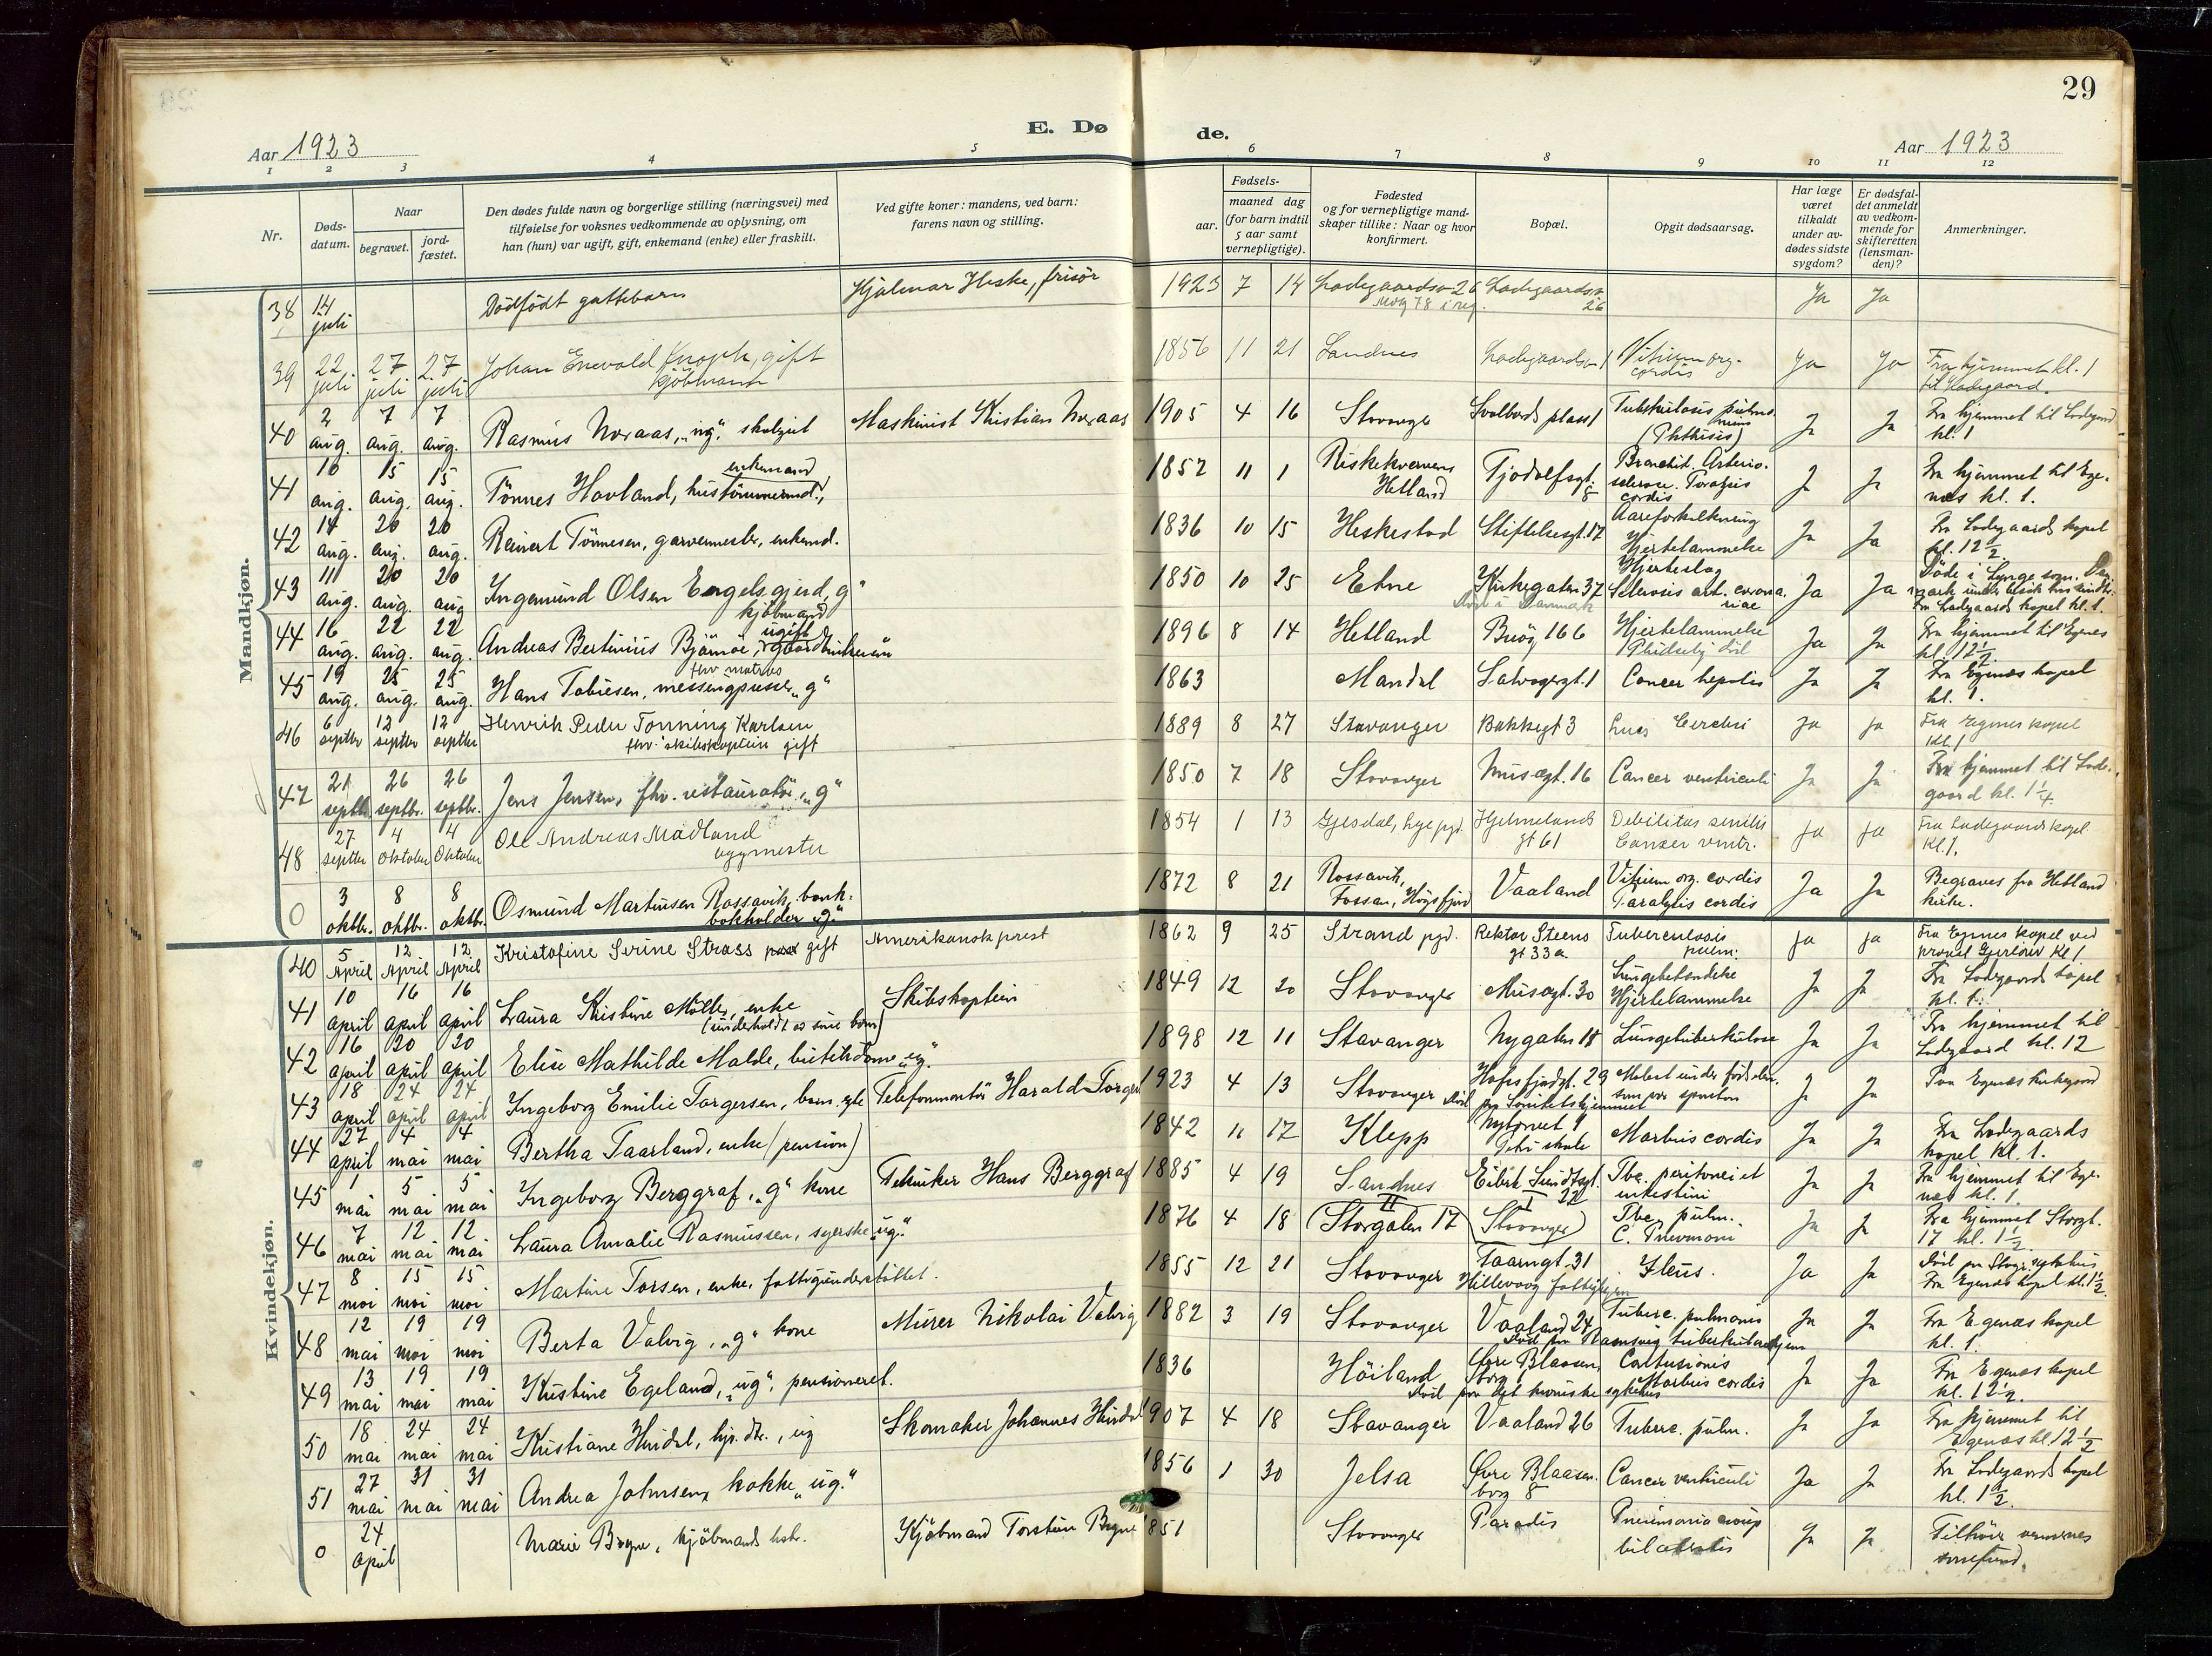 29
E. Døde.
Aar 1923
Aar 1923
1 2 3 4 5 6 7 8 9 10 11 12
Nr.
Døds-datum.
Naar
begravet.
jord-fæstet.
Den dødes fulde navn og borgerlige stilling (næringsvei) med
tilføielse for voksnes vedkommende av oplysning, om
han (hun) var ugift, gift, enkemand (enke) eller fraskilt.
Ved gifte koner: mandens, ved barn:
farens navn og stilling.
Fødsels-
aar. maaned dag
(for barn indtil
5 aar samt
vernepligtige).
Fødested
og for vernepligtige mand-
skaper tillike: Naar og hvor
konfirmert.
Bopæl.
Opgit dødsaarsag.
Har læge
været
tilkaldt
under av-
dødes sidste
sygdom?
Er dødsfal-
det anmeldt
av vedkom-
mende for
skifteretten
(lensman-
den)?
Anmerkninger.
Mandkjøn.
38 14 juli Dödfödt guttebarn Hjalmar Heske, frisör 1923 7 14 Ladegaardsv 26 Ladegaardsv 26 Ja Ja
39 22 juli 27 juli 27 juli Johan Enevold Knoph, gift kjöbmann 1856 11 21 Sandnes Ladegaardsv 1 Vitium org. cordis Ja Ja Fra hjemmet kl. 1 til Ladegaard.
40 2 aug. 7 aug. 7 aug. Rasmus Noraas, "ug", skolegut Maskinist Kristian Noraas 1905 4 16 Stavanger Svalbards plass 1 Tuberkulosis pulmonum (Phthisis) Ja Ja Fra hjemmet til Ladegaard kl. 1
41 10 aug. 15 aug. 15 aug. Tönnes Hovland, hustömmermd., enkemand 1852 11 1 Riskekvernen Hetland Tjodolfsgt. 8 Bronchit. Arterio-sclerose. Paralysis cordis Ja Ja Fra hjemmet til Egenæs kl. 1.
42 14 aug. 20 aug. 20 aug. Reinert Tönnesen, garvermester, enkemd. 1836 10 15 Heskestad Stiftelsesgt. 17 Aareforkalkning Hjertelammelse Ja Ja Fra Ladegaards kapel kl. 12½.
43 11 aug. 20 aug. 20 aug Ingemund Olsen Engelsgjerd, g" kjöbmand 1850 10 25 Etne Kirkegaten 37 Död i Danmark Hjerteslag Sclerosis art. coronariae Ja Ja Döde i Lynge sogn. Danmark under besök hos Fra Ladegaards kapel kl. 1.
44 16 aug. 22 aug. 22 aug. Andreas Bertinius Björnöe, ugift 1896 8 14 Hetland Buöy 166 Hjertelammelse Pludselig död Ja Ja Fra hjemmet til Egenes kl. 12½.
45 19 aug. 25 aug. 25 aug. Hans Tobiesen, messengpusser, "g" fhv matros 1863 Mandal Salvagergt. 1 Cancer hepatis Ja Ja Fra Egenæs kapel kl. 1.
46 6 septbr 12 septbr 12 septbr Henrik Peder Tonning Karlsen fhv. skibskaptein gift 1889 8 27 Stavanger Bakkegt 3 Lues Cerebri Ja Ja Fra Egenes kapel Kl. 1
47 21 septbr. 26 septbr. 26 septbr. Jens Jensen, fhv. restauratör, "g" 1850 7 18 Stavanger Musegt. 16 Cancer ventriculi Ja Ja Fra hjemmet til Ladegaard kl. 1¼.
48 27 septbr 4 Oktober 4 Oktober Ole Andreas Madland bygmester 1854 1 13 Gjesdal, Lye pgd. Hjelmelands gt 61 Debilitas senilis Cancer ventr. Ja Ja Fra Ladegaards kapel Kl. 1.
0 3 oktbr. 8 oktbr. 8 oktbr. Osmund Martinsen Rossavik, bank-bokholder "g" 1872 8 21 Rossavik, Fossan, Högsfjord Vaaland Vitium org. cordis Paralysis cordis Ja Ja Begraves fra Hetland kirke.
Kvindekjøn.
40 5 April 12 April 12 April Kristofine Serine Strass gift Amerikansk prest 1862 9 25 Strand pgd. Rektor Steens gt 33a. Tuberculosis pulm. Ja Ja Fra Egenes kapel ved prost Gjerlöw Kl 1.
41 10 april 16 april 16 april Laura Kristine Möller, enke (underholdt av sine barn) Skibskaptein 1849 12 20 Stavanger Musegt. 30 Lungebetendelse Hjertelammelse Ja Ja Fra Ladegaards kapel kl. 1.
42 16 april 20 april 20 april Elise Mathilde Malde, butikdame "ug". 1898 12 11 Stavanger Nygaten 18 Lungetuberkulose Ja Ja Fra hjemmet til Ladegaard kl. 12
43 18 april 24 april 24 april Ingeborg Emilie Torgersen, barn. egte Telefonmontör Harald Torgersen 1923 4 13 Stavanger Hafrsfjordgt. 29 död paa Sanitetshjemmet Ja Ja Paa Egenæs kirkegaard
44 27 april 4 mai 4 mai Bertha Taarland, enke (pension) 1842 11 17 Klepp Nytorvet 9 Morbus cordis Ja Ja Fra Ladegaards kapel kl. 1.
45 1 mai 5 mai 5 mai Ingeborg Berggraf, "g" kone Tekniker Hans Berggraf 1885 4 19 Sandnes Eilert Sundtsgt. 22 Tbc. peritonei et intestini Ja Ja Fra hjemmet til Egenæs kl. 1.
46 7 mai 12 mai 12 mai Laura Amalie Rasmussen, syerske "ug". 1876 4 18 II (Storgaten 17 I Stavanger) Tbc. pulm. C. Pneumoni Ja Ja Fra hjemmet Storgt. 17 kl. 1½.
47 8 mai 15 mai 15 mai Martine Torsen, enke, fattigunderstöttet. 1855 12 21 Stavanger Taarngt. 31 Hillevaag fattighjem Ileus. Ja Ja Död paa Stvgr. sykehus Fra Egenæs kapel kl. 1½.
48 12 mai 19 mai 19 mai Berta Valvig, "g" kone Murer Nikolai Valvig 1882 3 19 Stavanger Vaaland 24 Död paa Ramsvig tuberkulosehjem Tuberc. pulmonis Ja Ja Fra Egenæs kapel kl. 1.
49 13 mai 19 mai 19 mai Kristine Egeland, "ug", pensioneret. 1836 Höiland Övre Blaasen, Död paa det kroniske sykehus Contusionis Morbus cordis Ja Ja Fra Egenæs kapel kl. 12½.
50 18 mai 24 mai 24 mai Kristiane Hindal, hjv. dtr., ug Skomaker Johannes Hindal 1907 4 18 Stavanger Vaaland 26 Tuberc. pulm. Ja Ja Fra hjemmet til Egenæs kl. 12½
51 27 mai 31 mai 31 mai Andrea Johnsen, kokke "ug". 1856 1 30 Jelsa Övre Blaasenborg 8 Cancer ventriculi Ja Ja Fra Ladegaards kapel kl. 1½.
0 24 april Marie Bryne, kjöbmands hstr. Kjöbmand Torstein Bryne 1851 Stavanger Paradis Pneumonia croup bilateralis Ja Ja Tilhörer vennernes samfund.